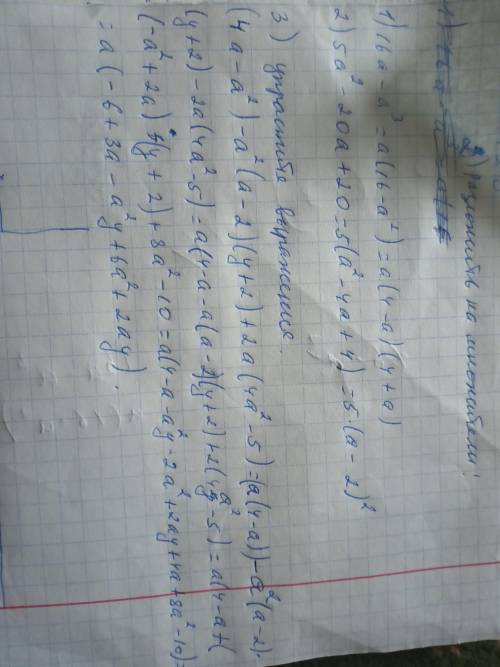 2) разложить на множители:
1) 16a - a³ = a(16 - a²) = a(4 - a)(4 + a)
2) 5a² - 20a + 20 = 5(a² - 4a + 4) = 5·(a - 2)²
3) упростить выражения.
(4a - a²) - a²(a - 2)(y + 2) + 2a(4a² - 5) = (a(4 - a)) - a²(a - 2)·
(y + 2) - 2a(4a² - 5) = a(4 - a - a(a - 2)(y + 2) + 2(4a² - 5) = a(4 - a + (
(-a² + 2a)·(y + 2) + 8a² - 10 = a(4 - a - a²y - 2a² + 2ay + 4a + 8a² - 10) =
= a(-6 + 3a - a²y + 6a² + 2ay).